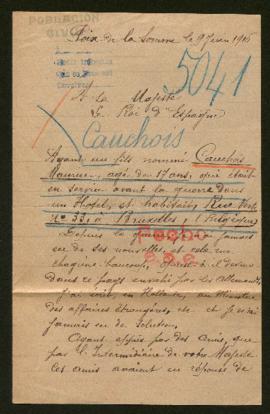 POBLACION
CIVIL
Poix de la Somme le 9 Juin 1915
5041
A Sa Majesté
Le Roi d'Espagne
Cauchois
Ayant un fils nommé Cauchois
Maurice, agé de 17 ans, qui était
en service avant la guerre dans
un Hotel, et habitait, Rue
n° 33, à Bruxelles, (Belgique)
Depuis la jamais
eu de ses nouvelles, et cela me
chagrine beaucoup,
dans ce pays envahi par les Allemands,
j'ai écrit, en Hollande, au Ministère
des affaires étrangères, etc. et je n'ai
jamais eu de Solution.
Ayant appris par des amis, que
par l'Intermédiaire de votre Majesté
ces amis avaient eu réponse de